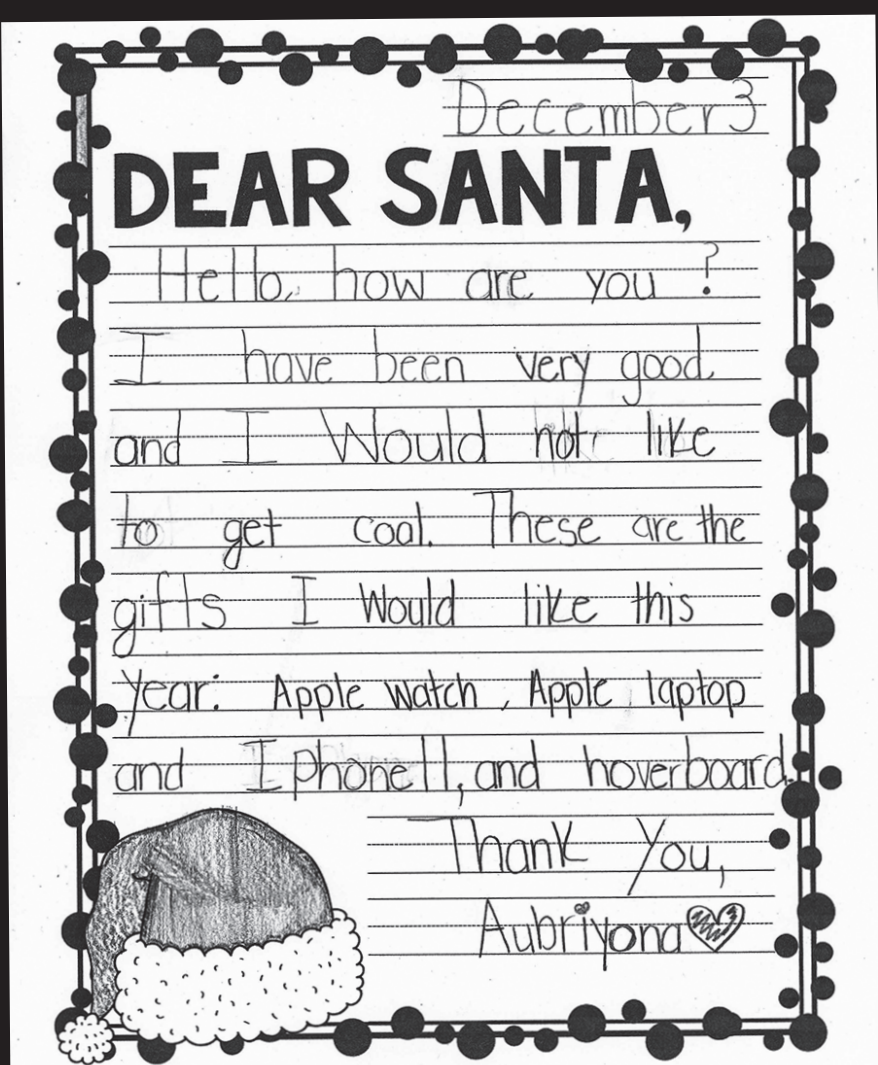 December 3
DEAR SANTA,
Hello, how are you ?
I have been very good
and I Would not like
to get coal. These are the
gifts I Would like this
year: Apple watch, Apple laptop
and I phone11, and hoverboard.
Thank You,
Aubriyona